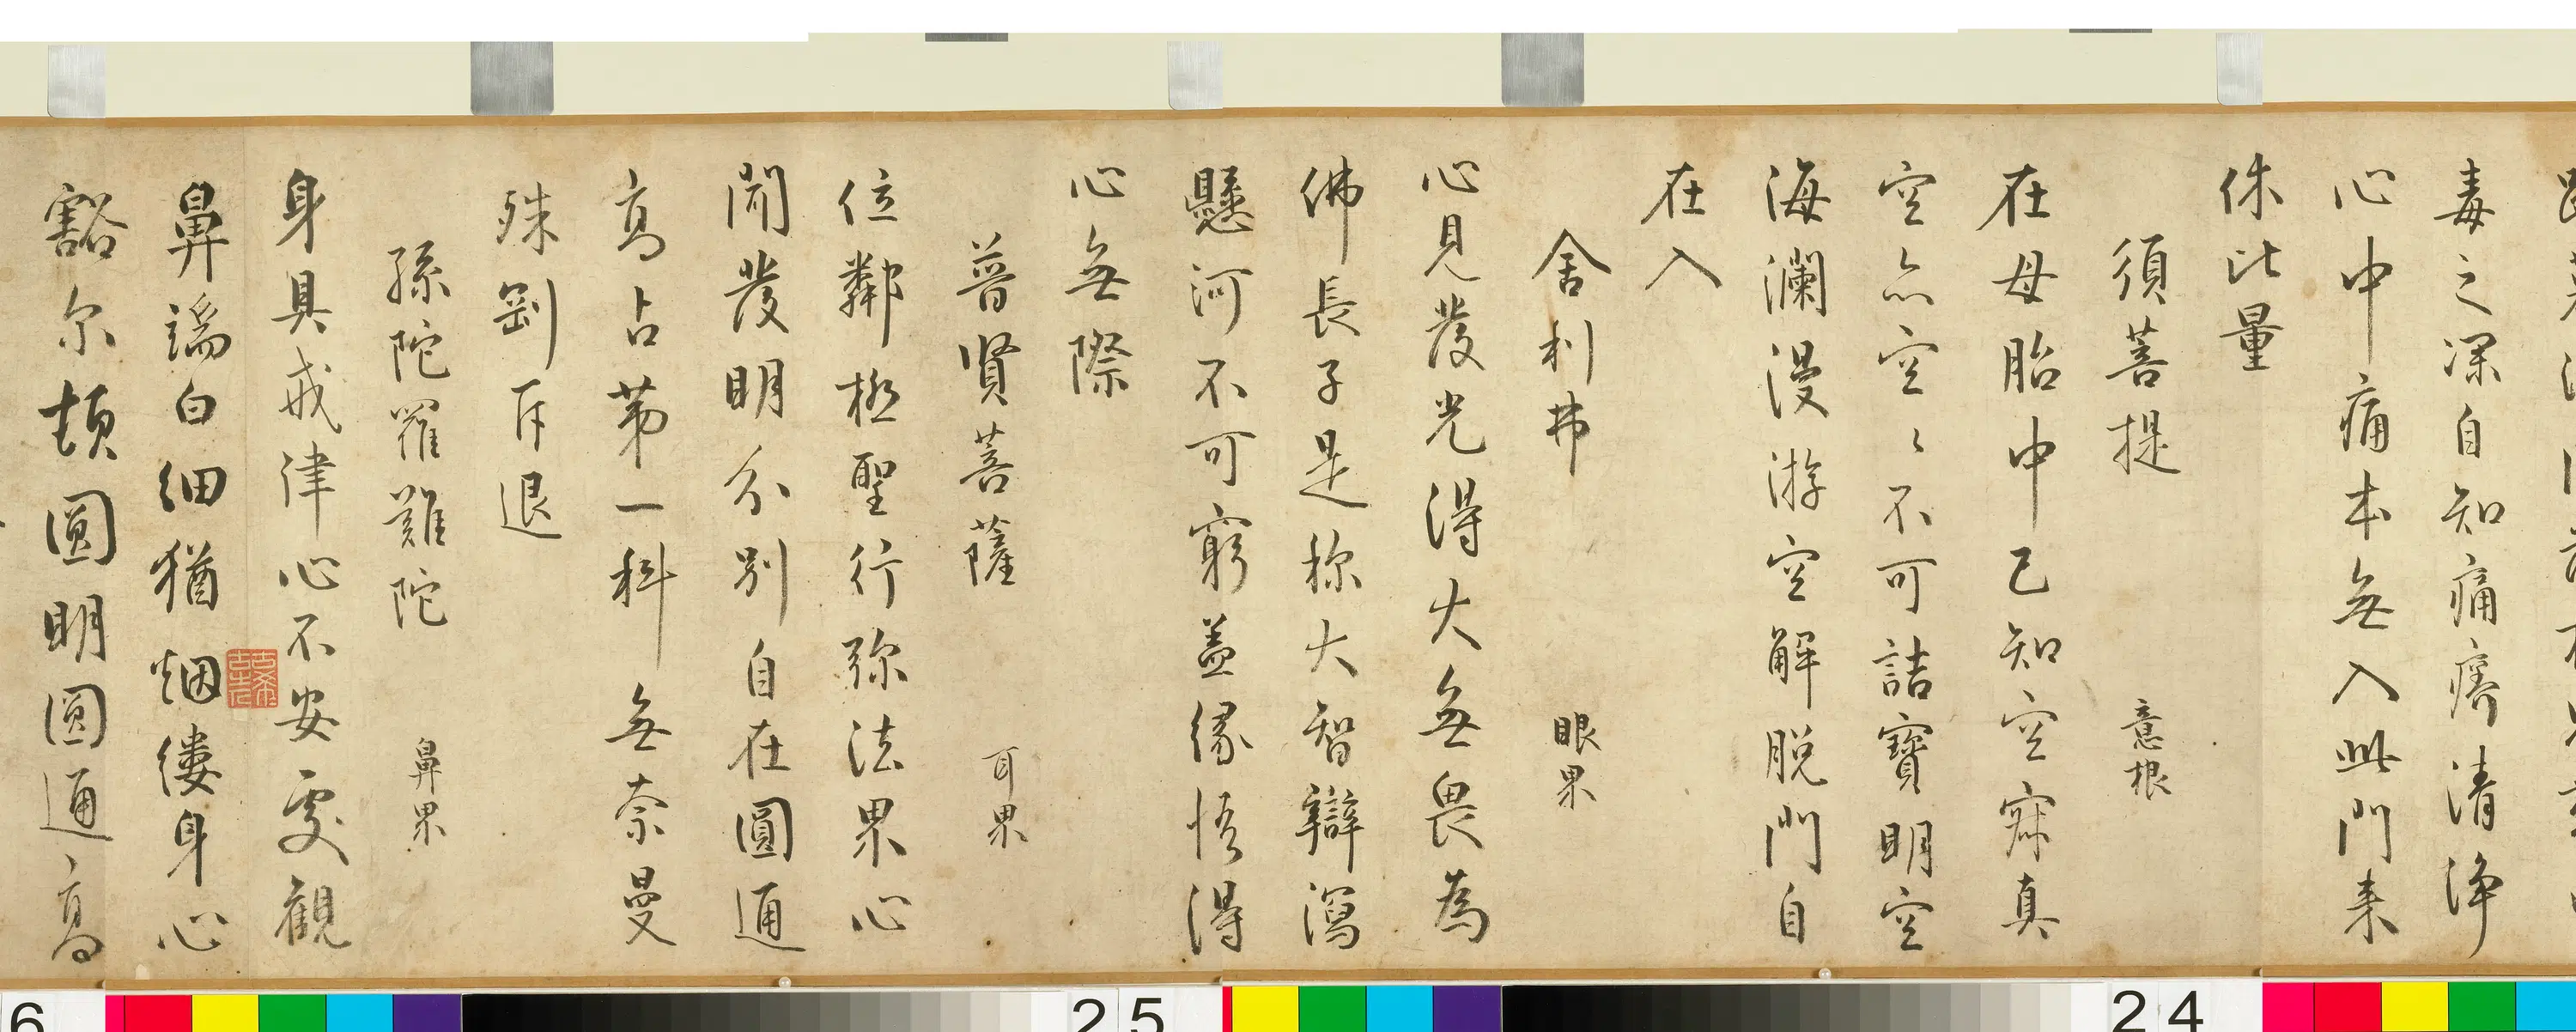 毒之深自知痛痛清浄
心中痛本無入此門来
侏比量
須菩提 意根
在母胎中已知空寐真
空亦空〻不可詰寶明空
海瀾漫游空解脱門自
在入
舍利弗 眼界
心見發光得大無畏為
佛長子是称大智辯瀉
懸河不可窮蓋緣悟得
心無際
普賢菩薩 耳界
位鄰極聖行弥法界心
聞發明分別自在圓通
高占苐一科無奈曼
殊剛斥退
孫陀羅難陀 鼻界
身具戒律心不安處観
鼻端白細猶烟縷身心
豁尔頓圓明圓通高
6
25
24